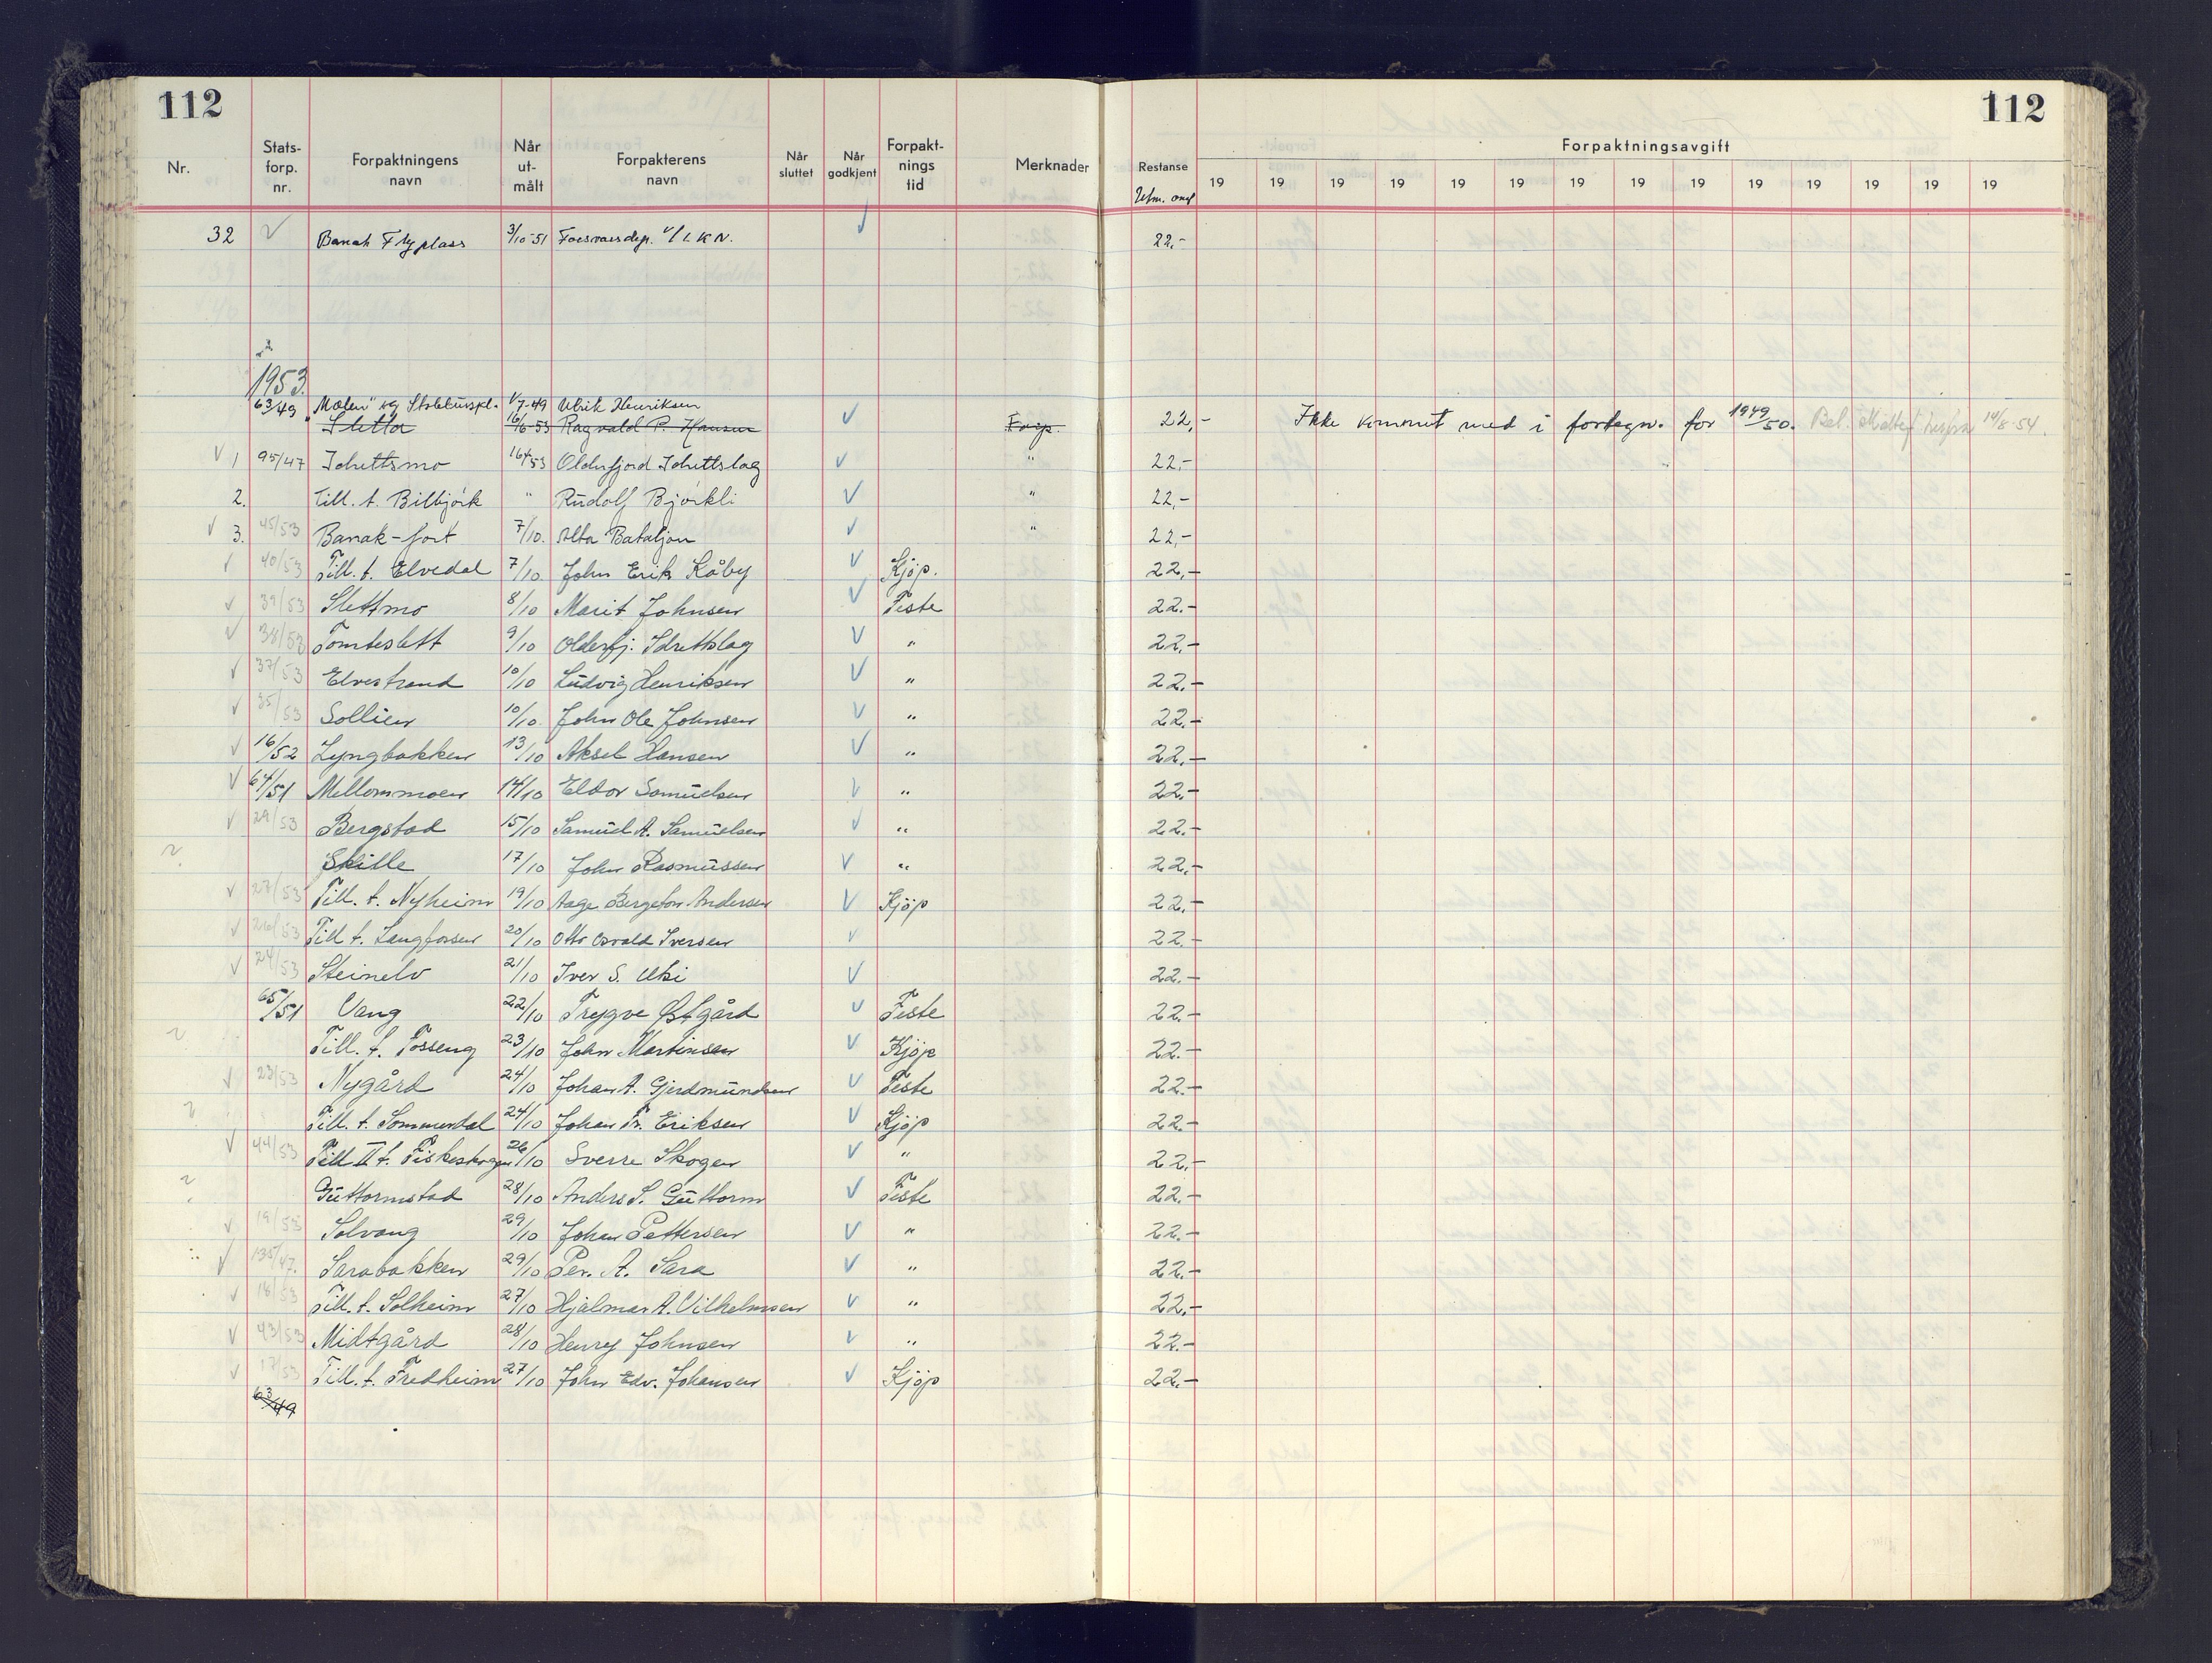 112
112
Nr. Stats-forp. nr. Forpaktningens navn Når ut-målt Forpakterens navn Når sluttet Når godkjent Forpakt-nings tid Merknader Restanse Forpaktningsavgift
19 19 19 19 19 19 19 19 19 19 19 19 19 19
32 ✓ Banak Flyplass 3/10-51 Forsvarsdep. v/ L K N. ✓ 22,-
1953.
63/49 "Molen" og Ulrik Henriksen ✓ 22,- Ikke kommet med i fortegn. for 1949/50. 14/8-54.
Sletta 16/6-53 Ragnvald P. Hansen
✓ 1 95/47 Idrettsmo Olderfjord Idrettslag ✓ " 22,-
2. Till. t. Bilbjörk " Rudolf Björkli ✓ " 22,-
✓ 3. 45/53 Banak-fort 7/10. Alta Bataljon ✓ " 22,-
✓ 40/53 Till. t. Elvedal 7/10. John Erik Låby ✓ Kjöp. 22,-
✓ 39/53 Slettmo 8/10 Marit Johnsen ✓ Feste 22.-
✓ 38/53 Tomteslett 9/10 Olderfj. Idrettslag ✓ " 22,-
✓ 37/53 Elvestrand 10/10 Ludvig Henriksen ✓ " 22.-
✓ 35/53 Sollien 10/10. John Ole Johnsen ✓ " 22.-
✓ 16/52 Lyngbakken 13/10 Aksel Hansen ✓ " 22,-
✓ 64/51 Mellommoen 14/10 Eldor Samuelsen ✓ " 22,-
✓ 29/53 Bergstad 15/10 Samuel A. Samuelsen ✓ " 22.-
? Skille 17/10 John Rasmussen ✓ " 22,-
✓ 27/53 Till. t. Nyheim 19/10 Aage Bergeton Andersen ✓ Kjöp 22,-
✓ 26/53 Till t. Langfossen 20/10 Otto Osvald Iversen ✓ 22.-
✓ 24/53 Steinelv 21/10 Iver S. Utsi ✓ 22.-
65/51 Vang 22/10 Trygve Østgård ✓ Feste 22.-
? Till. t. Fosseng 23/10 John Martinsen ✓ Kjöp 22.-
✓ 23/53 Nygård 24/10 Johan A. Gjerdmundsen ✓ Feste 22.-
? Till. t. Sommerdal 24/10 Johan Fr. Eriksen ✓ Kjöp 22.-
✓ 44/53 Till II t. Fiskeskogen 26/10 Sverre Skogen ✓ " 22,-
? Guttormstad 28/10 Anders S. Guttorm ✓ Feste 22.-
✓ 19/53 Solvang 29/10 Johan Pettersen ✓ " 22.-
✓ 135/47. Sarabakken 29/10 Per. A. Sara ✓ " 22.-
✓ 18/53 Till. t. Solheim 27/10 Hjalmar A. Vilhelmsen ✓ " 22,-
✓ 43/53 Midtgård 28/10 Henry Johnsen ✓ " 22.-
✓ 17/53 Till. t. Fredheim 27/10 John Edv. Johansen ✓ Kjöp 22.-
63/49